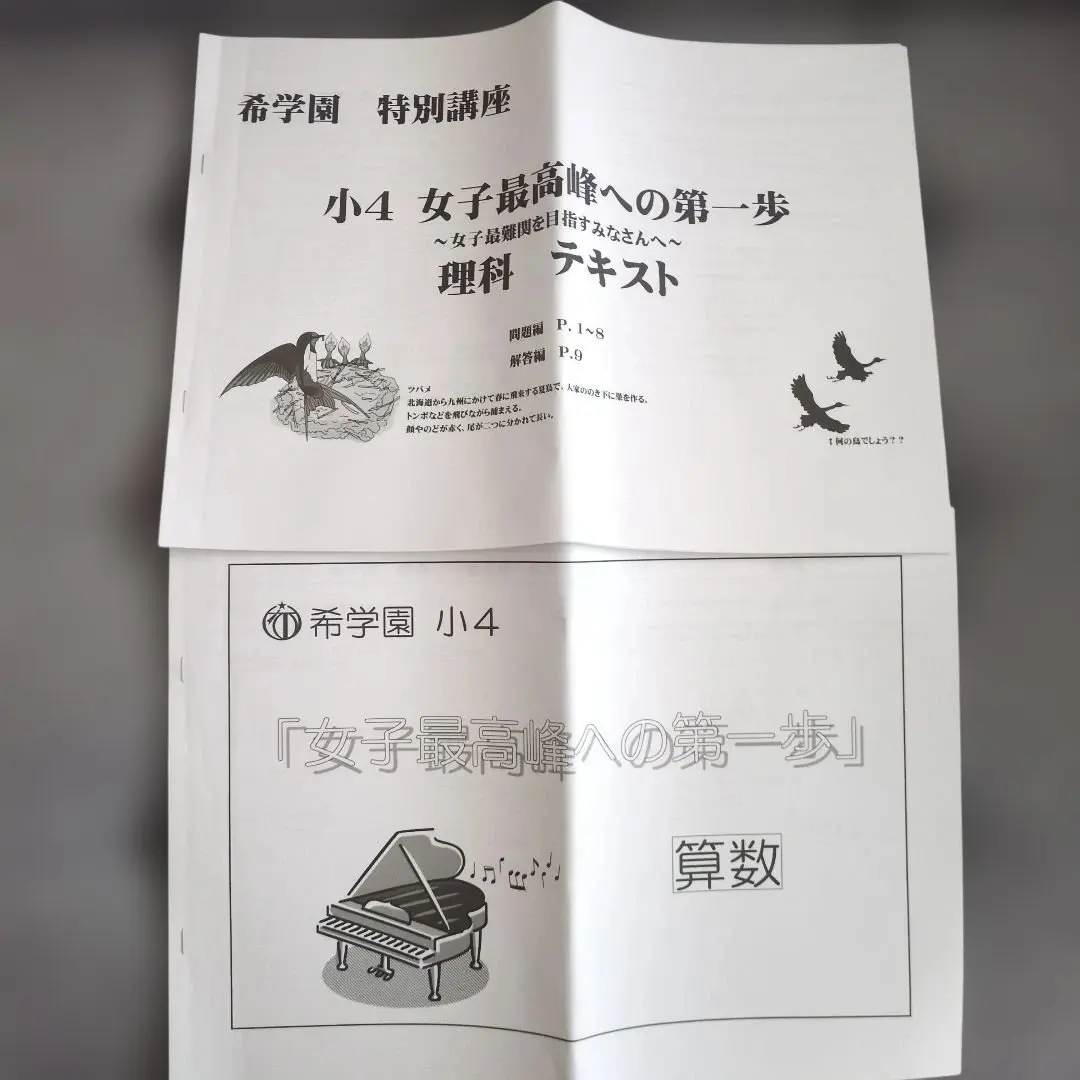 希学園 特別講座
小4 女子最高峰への第一歩
~女子最難関を目指すみなさんへ~
理科 テキスト
問題編 P.1~8
解答編 P.9
ツバメ
北海道から九州にかけて春に飛来する夏鳥で、人家ののき下に巣を作る。
トンボなどを飛びながら捕まえる。
顔やのどが赤く、尾が二つに分かれて長い。
↑何の鳥でしょう??
希学園 小4
「女子最高峰への第一歩」
算数